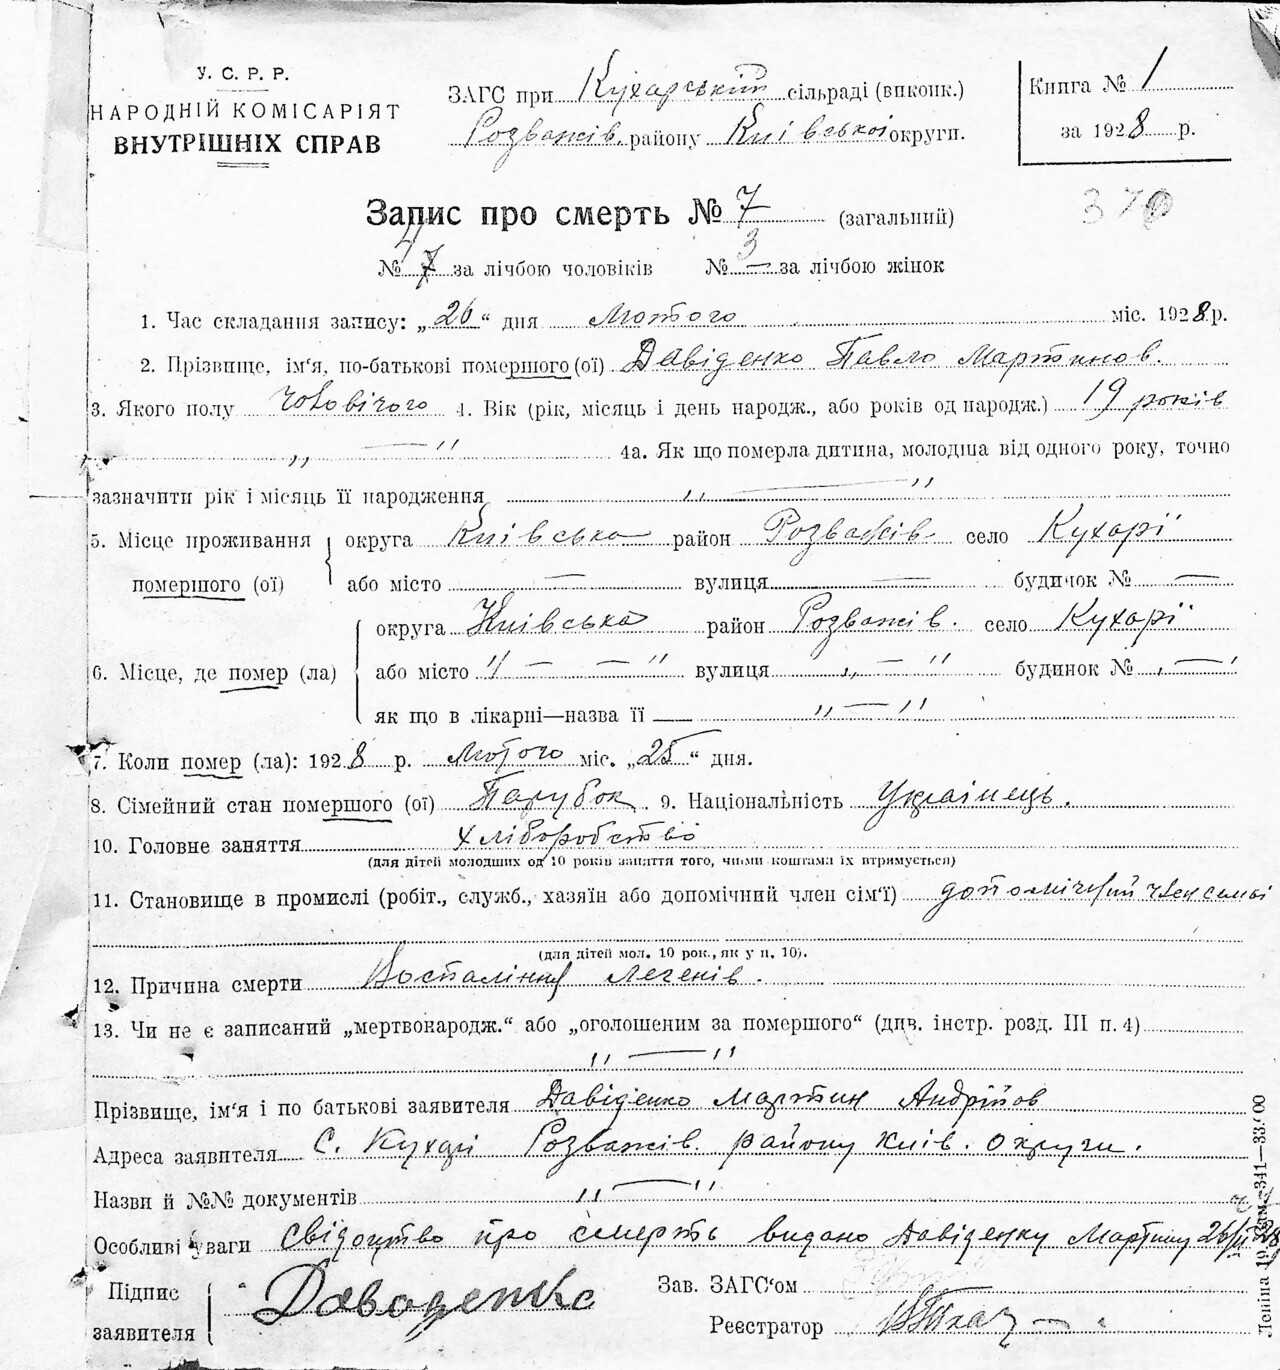 У. С. Р. Р.
НАРОДНІЙ КОМІСАРІЯТ
ВНУТРІШНІХ СПРАВ
ЗАГС при Кухарській сільраді (виконк.)
Розважів. району Київської округи.
Книга № 1
за 1928 р.
Запис про смерть № 7 (загальний)
370
№ 4 7 за лічбою чоловіків № 3 — за лічбою жінок
1. Час складання запису: „26“ дня Лютого міс. 1928 р.
2. Прізвище, ім'я, по-батькові помершого (ої) Давіденко Павло Мартинов.
3. Якого полу чоловічого 4. Вік (рік, місяць і день народж., або років од народж.) 19 років
„ — “ 4а. Як що померла дитина, молодша від одного року, точно
зазначити рік і місяць її народження „ — “
5. Місце проживання помершого (ої) округа Київська район Розважів. село Кухарі
або місто — вулиця — будинок № —
6. Місце, де помер (ла) округа Київська район Розважів. село Кухарі
або місто „ — — “ вулиця „ — “ будинок № „ — “
як що в лікарні—назва її „ — “
7. Коли помер (ла): 1928 р. лютого міс. „25“ дня.
8. Сімейний стан помершого (ої) Парубок. 9. Національність Українець.
10. Головне заняття хліборобство
(для дітей молодших од 10 років заняття того, чиїми коштами їх втримується)
11. Становище в промислі (робіт., служб., хазяїн або допомічний член сім'ї) допомічний член семьі
(для дітей мол. 10 рок., як у п. 10).
12. Причина смерти Воспаління легенів.
13. Чи не є записаний „мертвонародж.“ або „оголошеним за помершого“ (див. інстр. розд. III п. 4)
„ — “
Прізвище, ім'я і по батькові заявителя Давіденко Мартин Андрійов
Адреса заявителя С. Кухарі Розважів. району Київ. Округи.
Назви й №№ документів „ — “
Особливі уваги Свідоцтво про смерть видано Давіденку Мартину 26/II 28
Підпис заявителя Даводенко
Зав. ЗАГС'ом
Реєстратор ВТкач